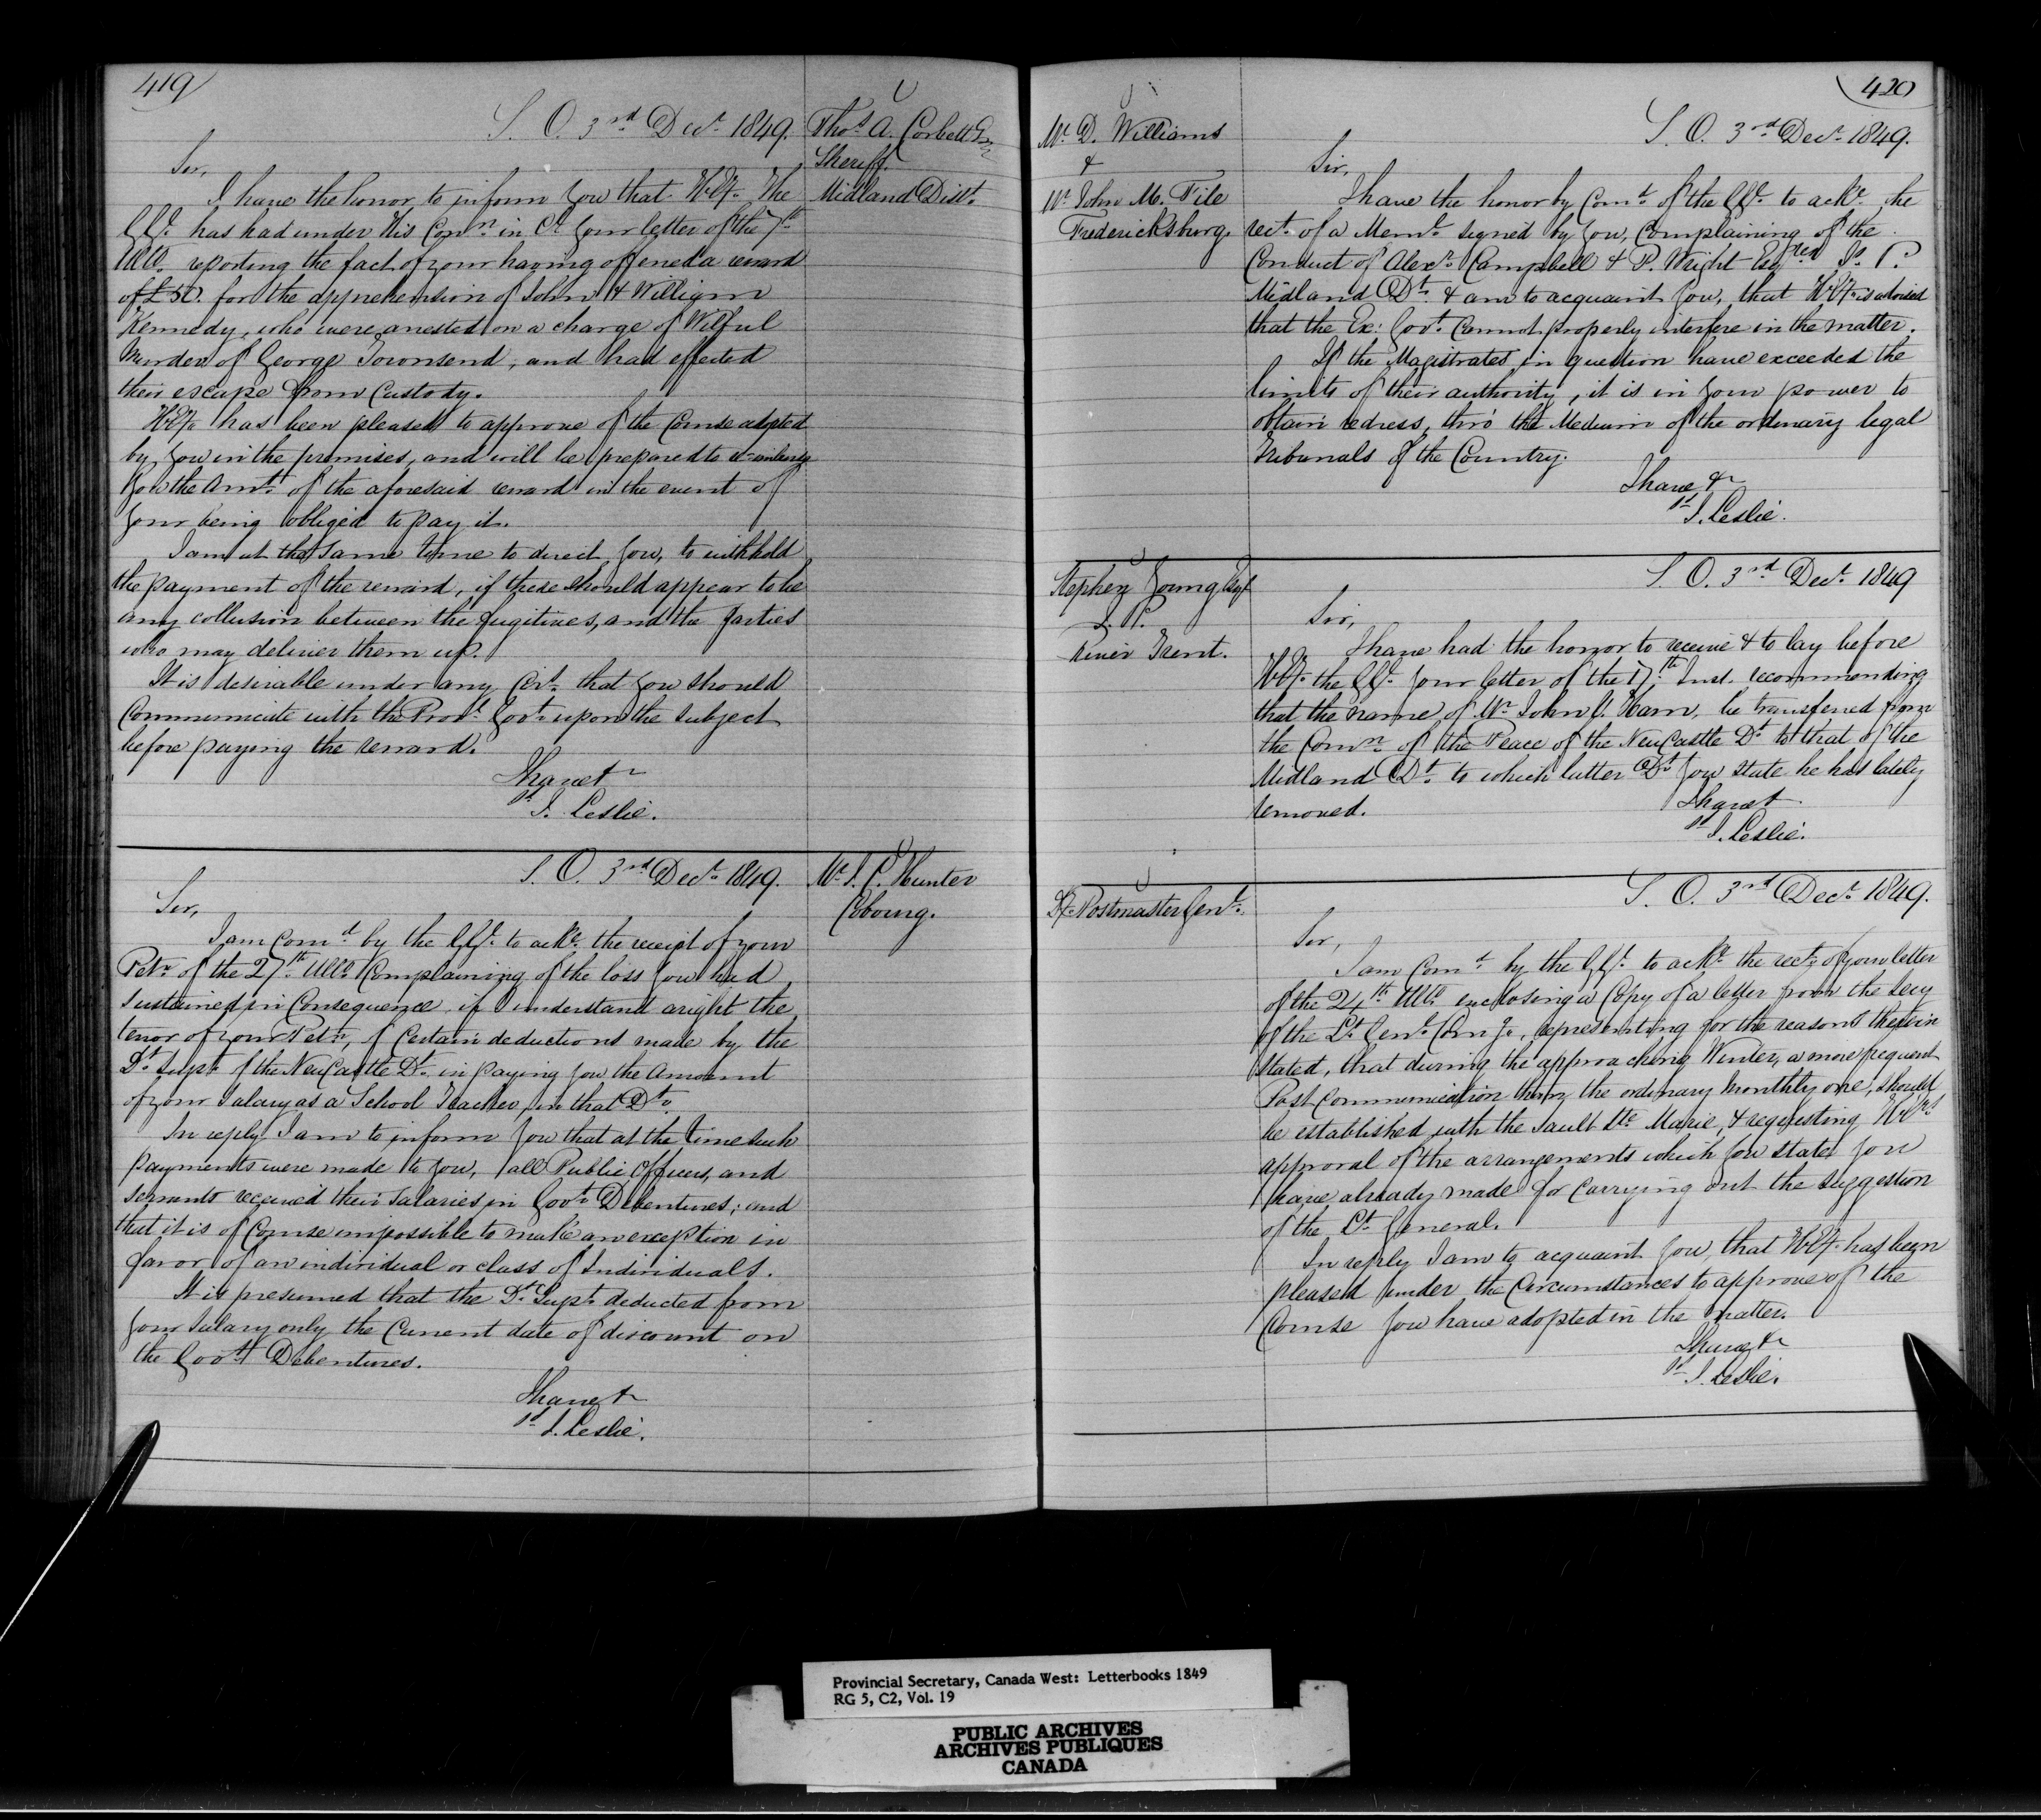 419
S. O. 3rd Decr. 1849.
Thos. A. Corbett Esqr
Sheriff
Midland Dist.
Sir,
I have the honor to inform you that H.Ey. The
G.Gl. has had under His Conn. in Cl. your letter of the 7th
Ulto. reporting the fact of your having offered a reward
of £50. for the apprehension of John & William
Kennedy, who were arrested on a charge of Wilful
Murder of George Townsend, and had effected
their escape from Custody.
H.Ey. has been pleased to approve of the Course adopted
by you in the premises, and will be prepared to re-imburse
you the Amt. of the aforesaid reward in the event of
your being obliged to pay it.
I am at the same time to direct you, to withhold
the payment of the reward, if there should appear to be
any collusion between the fugitives, and the parties
who may deliver them up.
It is desirable under any Cirt. that you should
Communicate with the Provl. Govt. upon the subject
before paying the reward.
I have &
sd J. Leslie.
S. O. 3rd Decr. 1849.
Mr. J. C. Hunter
Cobourg.
Sir,
I am Comd. by the G.Gl. to acke. the receipt of your
Petn. of the 27th. Ulto. Complaining of the loss you had
sustained in Consequence, if I understand aright the
tenor of your Petn., of Certain deductions made by the
Dt. Supt. of the NewCastle Dt. in paying you the Amount
of your Salary as a School Teacher, in that Dt.
In reply I am to inform you that at the time such
payments were made to you, all Public Officers, and
Servants received their Salaries in Govt. Debentures; and
that it is of Course impossible to make an exception in
favor of an individual or class of Individuals.
It is presumed that the Dt. Supt. deducted from
your Salary only the Current date of discount on
the Govtt Debentures.
I have &
sd J. Leslie.
420
Mr. D. Williams
&
Mr. John M. File
Fredericksburg.
S. O. 3rd Decr. 1849.
Sir,
I have the honor by Comd. of the G.Gl. to acke. the
rect. of a Meml. signed by you, Complaining of the
Conduct of Alexr. Campbell & P. Wright Esqres Js. P.
Midland Dt. & am to acquaint you, that H.Ey. is advised
that the Ex: Govt. Cannot properly interfere in the matter.
If the Magistrates in question have exceeded the
limits of their authority, it is in your power to
obtain redress, thro' the Medium of the ordinary legal
Tribunals of the Country.
I have &
sd J. Leslie.
Stephen Young Esqr
J. P.
River Trent.
S. O. 3rd Decr. 1849
Sir,
I have had the honor to receive & to lay before
H.Ey. the G.Gl. your letter of the 17th. Inst. recommending
that the name of Mr. John J. Ham, be transferred from
the Comn. of the Peace of the NewCastle Dt. to that of the
Midland Dt. to which latter Dt. you state he has lately
removed.
I have &
sd J. Leslie.
Dy. Postmaster Genl.
S. O. 3rd Decr. 1849.
Sir,
I am Comd. by the G.Gl. to acke. the rect. of your letter
of the 24th. Ulto. enclosing a Copy of a letter from the Secy
of the Lt. Genl. Comg., representing for the reasons therein
stated, that during the approaching Winter, a more frequent
Post Communication than the ordinary monthly one, should
be established with the Sault Ste. Marie, & requesting H.Eys
approval of the arrangements which you state you
have already made for carrying out the suggestion
of the Lt. General.
In reply I am to acquaint you that H.Ey. has been
pleased under the Circumstances to approve of the
Course you have adopted in the matter.
I have &
sd J. Leslie.
Provincial Secretary, Canada West: Letterbooks 1849
RG 5, C2, Vol. 19
PUBLIC ARCHIVES
ARCHIVES PUBLIQUES
CANADA